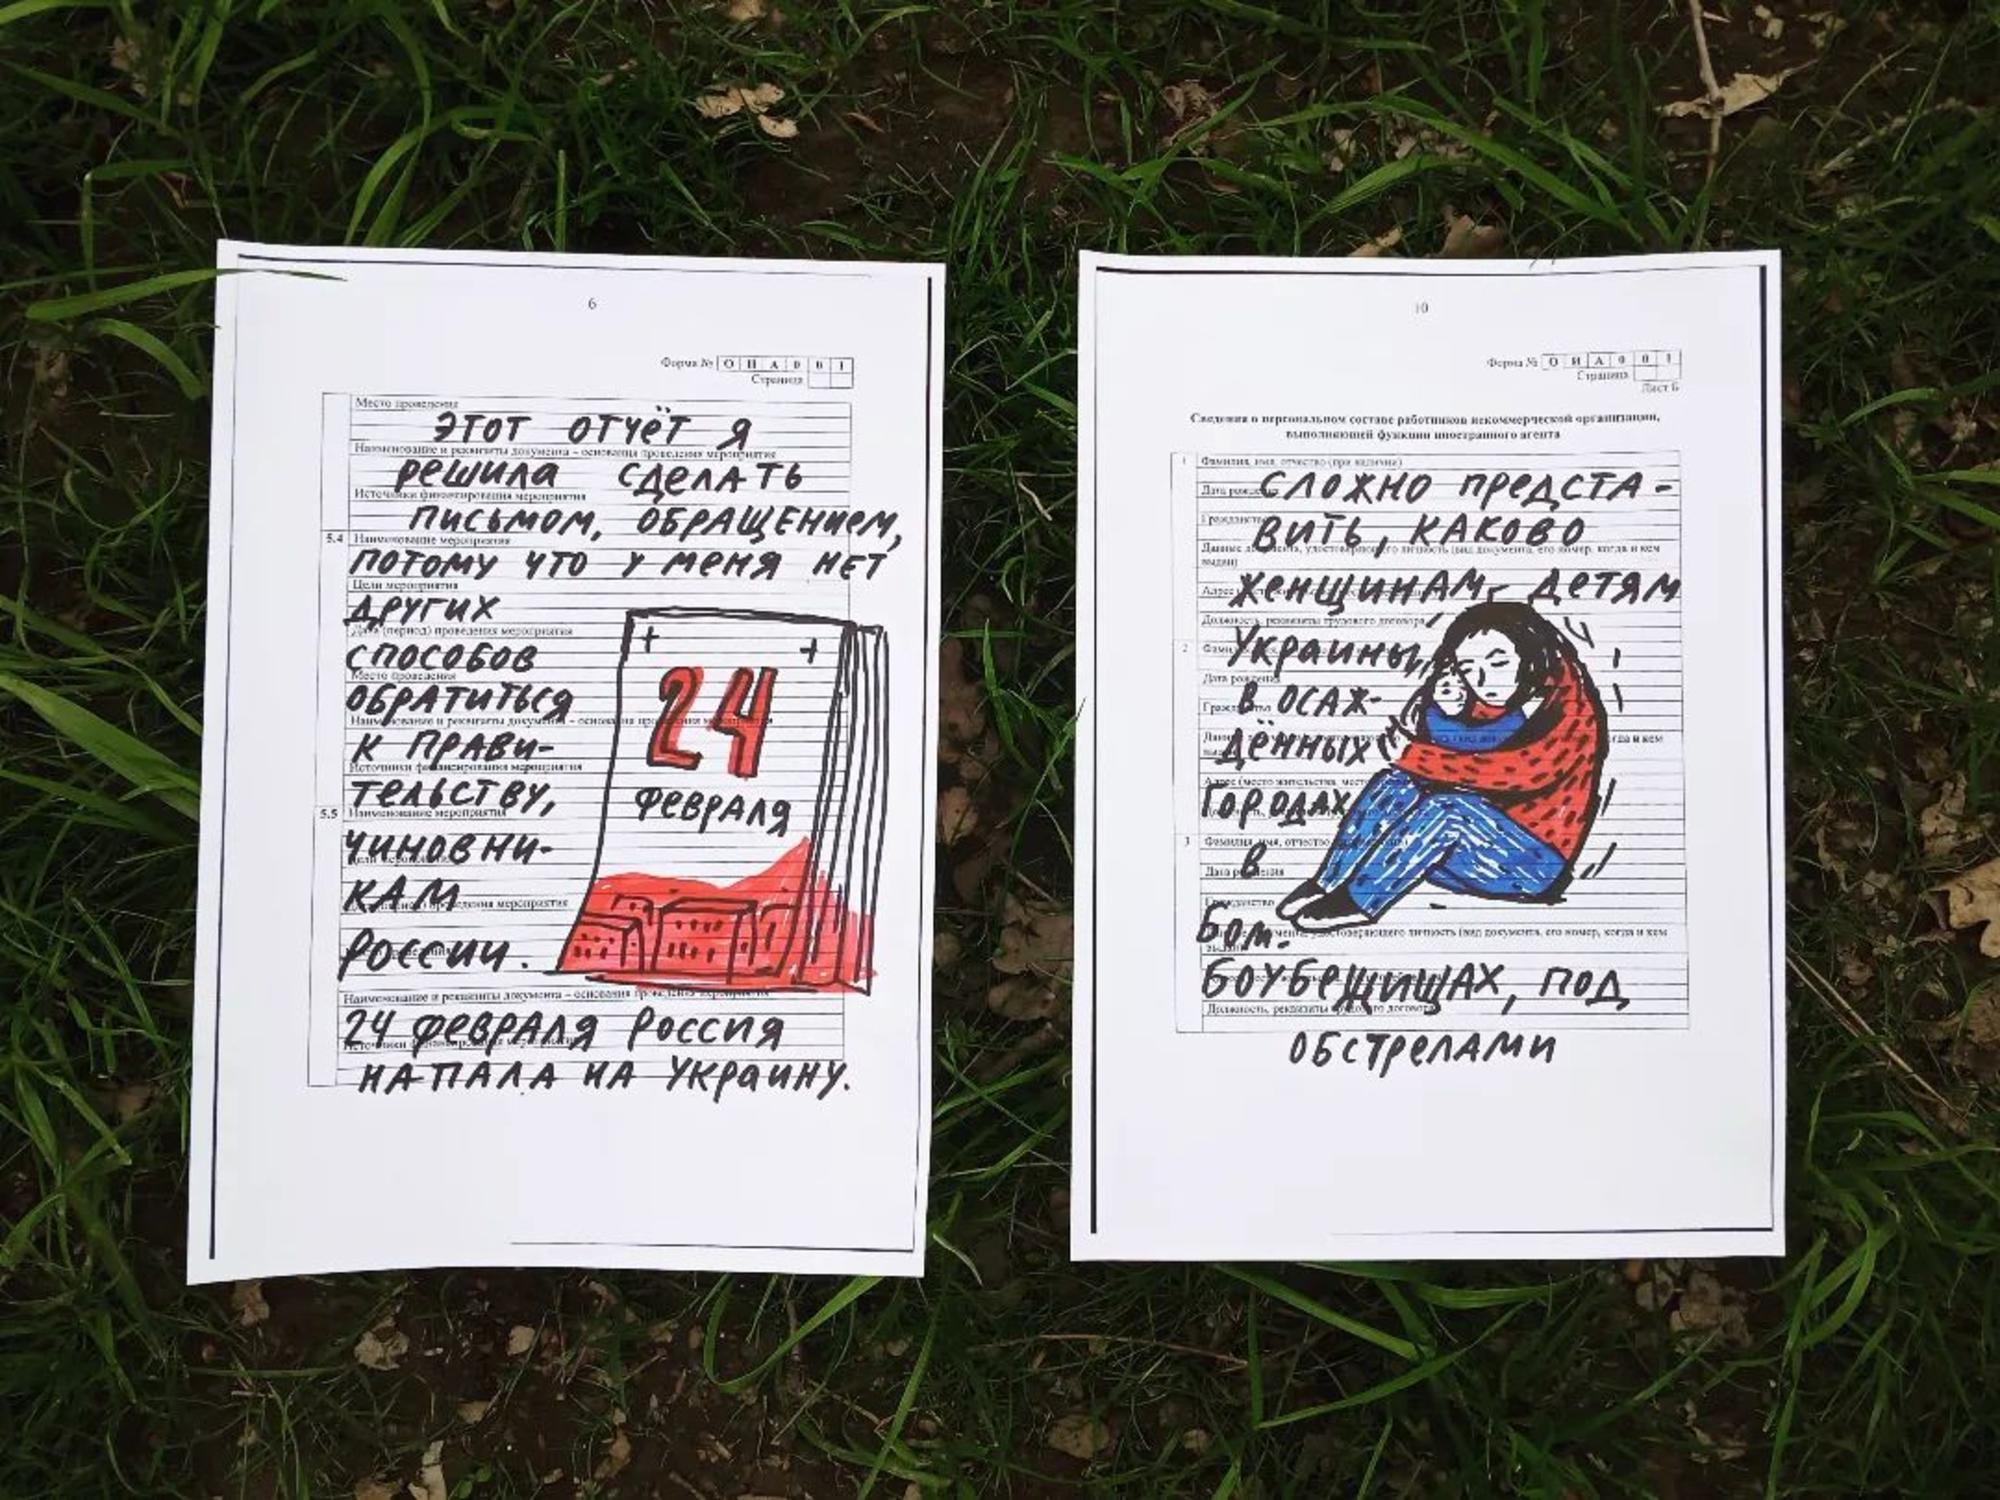 6
Форма № О И А 0 0 1
Страница
Место проведения
ЭТОТ ОТЧЁТ Я
Наименование и реквизиты документа – основания проведения мероприятия
РЕШИЛА СДЕЛАТЬ
Источники финансирования мероприятия
ПИСЬМОМ, ОБРАЩЕНИЕМ,
5.4 Наименование мероприятия
ПОТОМУ ЧТО У МЕНЯ НЕТ
Цели мероприятия
ДРУГИХ
Дата (период) проведения мероприятия
СПОСОБОВ
Место проведения
ОБРАТИТЬСЯ
Наименование и реквизиты документа – основания проведения мероприятия
К ПРАВИ-
Источники финансирования мероприятия
ТЕЛЬСТВУ,
5.5 Наименование мероприятия
ЧИНОВНИ-
Цели мероприятия
КАМ
проведения мероприятия
РОССИИ.
24
ФЕВРАЛЯ
Наименование и реквизиты документа – основания проведения мероприятия
24 ФЕВРАЛЯ РОССИЯ
Источники финансирования мероприятия
НАПАЛА НА УКРАИНУ.
10
Форма № О И А 0 0 1
Страница
Лист Б
Сведения о персональном составе работников некоммерческой организации,
выполняющей функции иностранного агента
1 Фамилия, имя, отчество (при наличии)
СЛОЖНО ПРЕДСТА-
Дата рождения
Гражданство
ВИТЬ, КАКОВО
Данные документа, удостоверяющего личность (вид документа, его номер, когда и кем
выдан)
ЖЕНЩИНАМ, ДЕТЯМ
Адрес
Должность, реквизиты трудового договора
2
УКРАИНЫ,
Дата рождения
В ОСАЖ-
Гражданство
ДЁННЫХ
когда и кем
Адрес (место жительства, место
ГОРОДАХ
3 Фамилия, имя, отчество
В
Дата рождения
Гражданство
БОМ-
удостоверяющего личность (вид документа, его номер, когда и кем
БОУБЕЖИЩАХ, ПОД
Должность, реквизиты трудового договора
ОБСТРЕЛАМИ